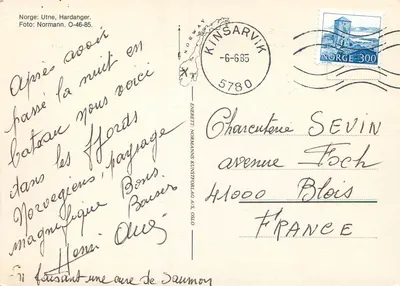 Norge: Utne, Hardanger.
Foto: Normann. O-46-85.
Après avoir
passé la nuit en
bateau nous voici
dans les fjords
Norvegiens, paysage
magnifique Bons
Baisers
Henri
En faisant une cure de Saumon
NORWAY
ENERETT: NORMANNS KUNSTFORLAG A/S, OSLO
KINSARVIK
-6-6.85
5780
NORGE 300
Charcuterie SEVIN
avenue Foch
41000 Blois
FRANCE